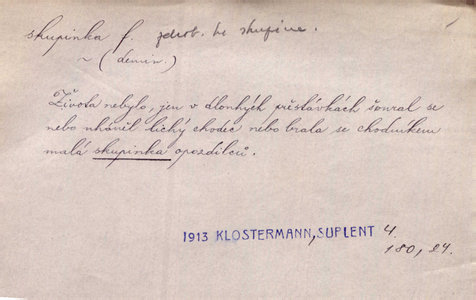 skupinka f. zdrob. ke skupina.
~ (demin.)
Života nebylo, jen v dlouhých přestávkách šoural se
nebo uháněl lichý chodec nebo brala se chodníkem
malá skupinka opozdilců.
1913 KLOSTERMANN, SUPLENT 4.
180, 24.